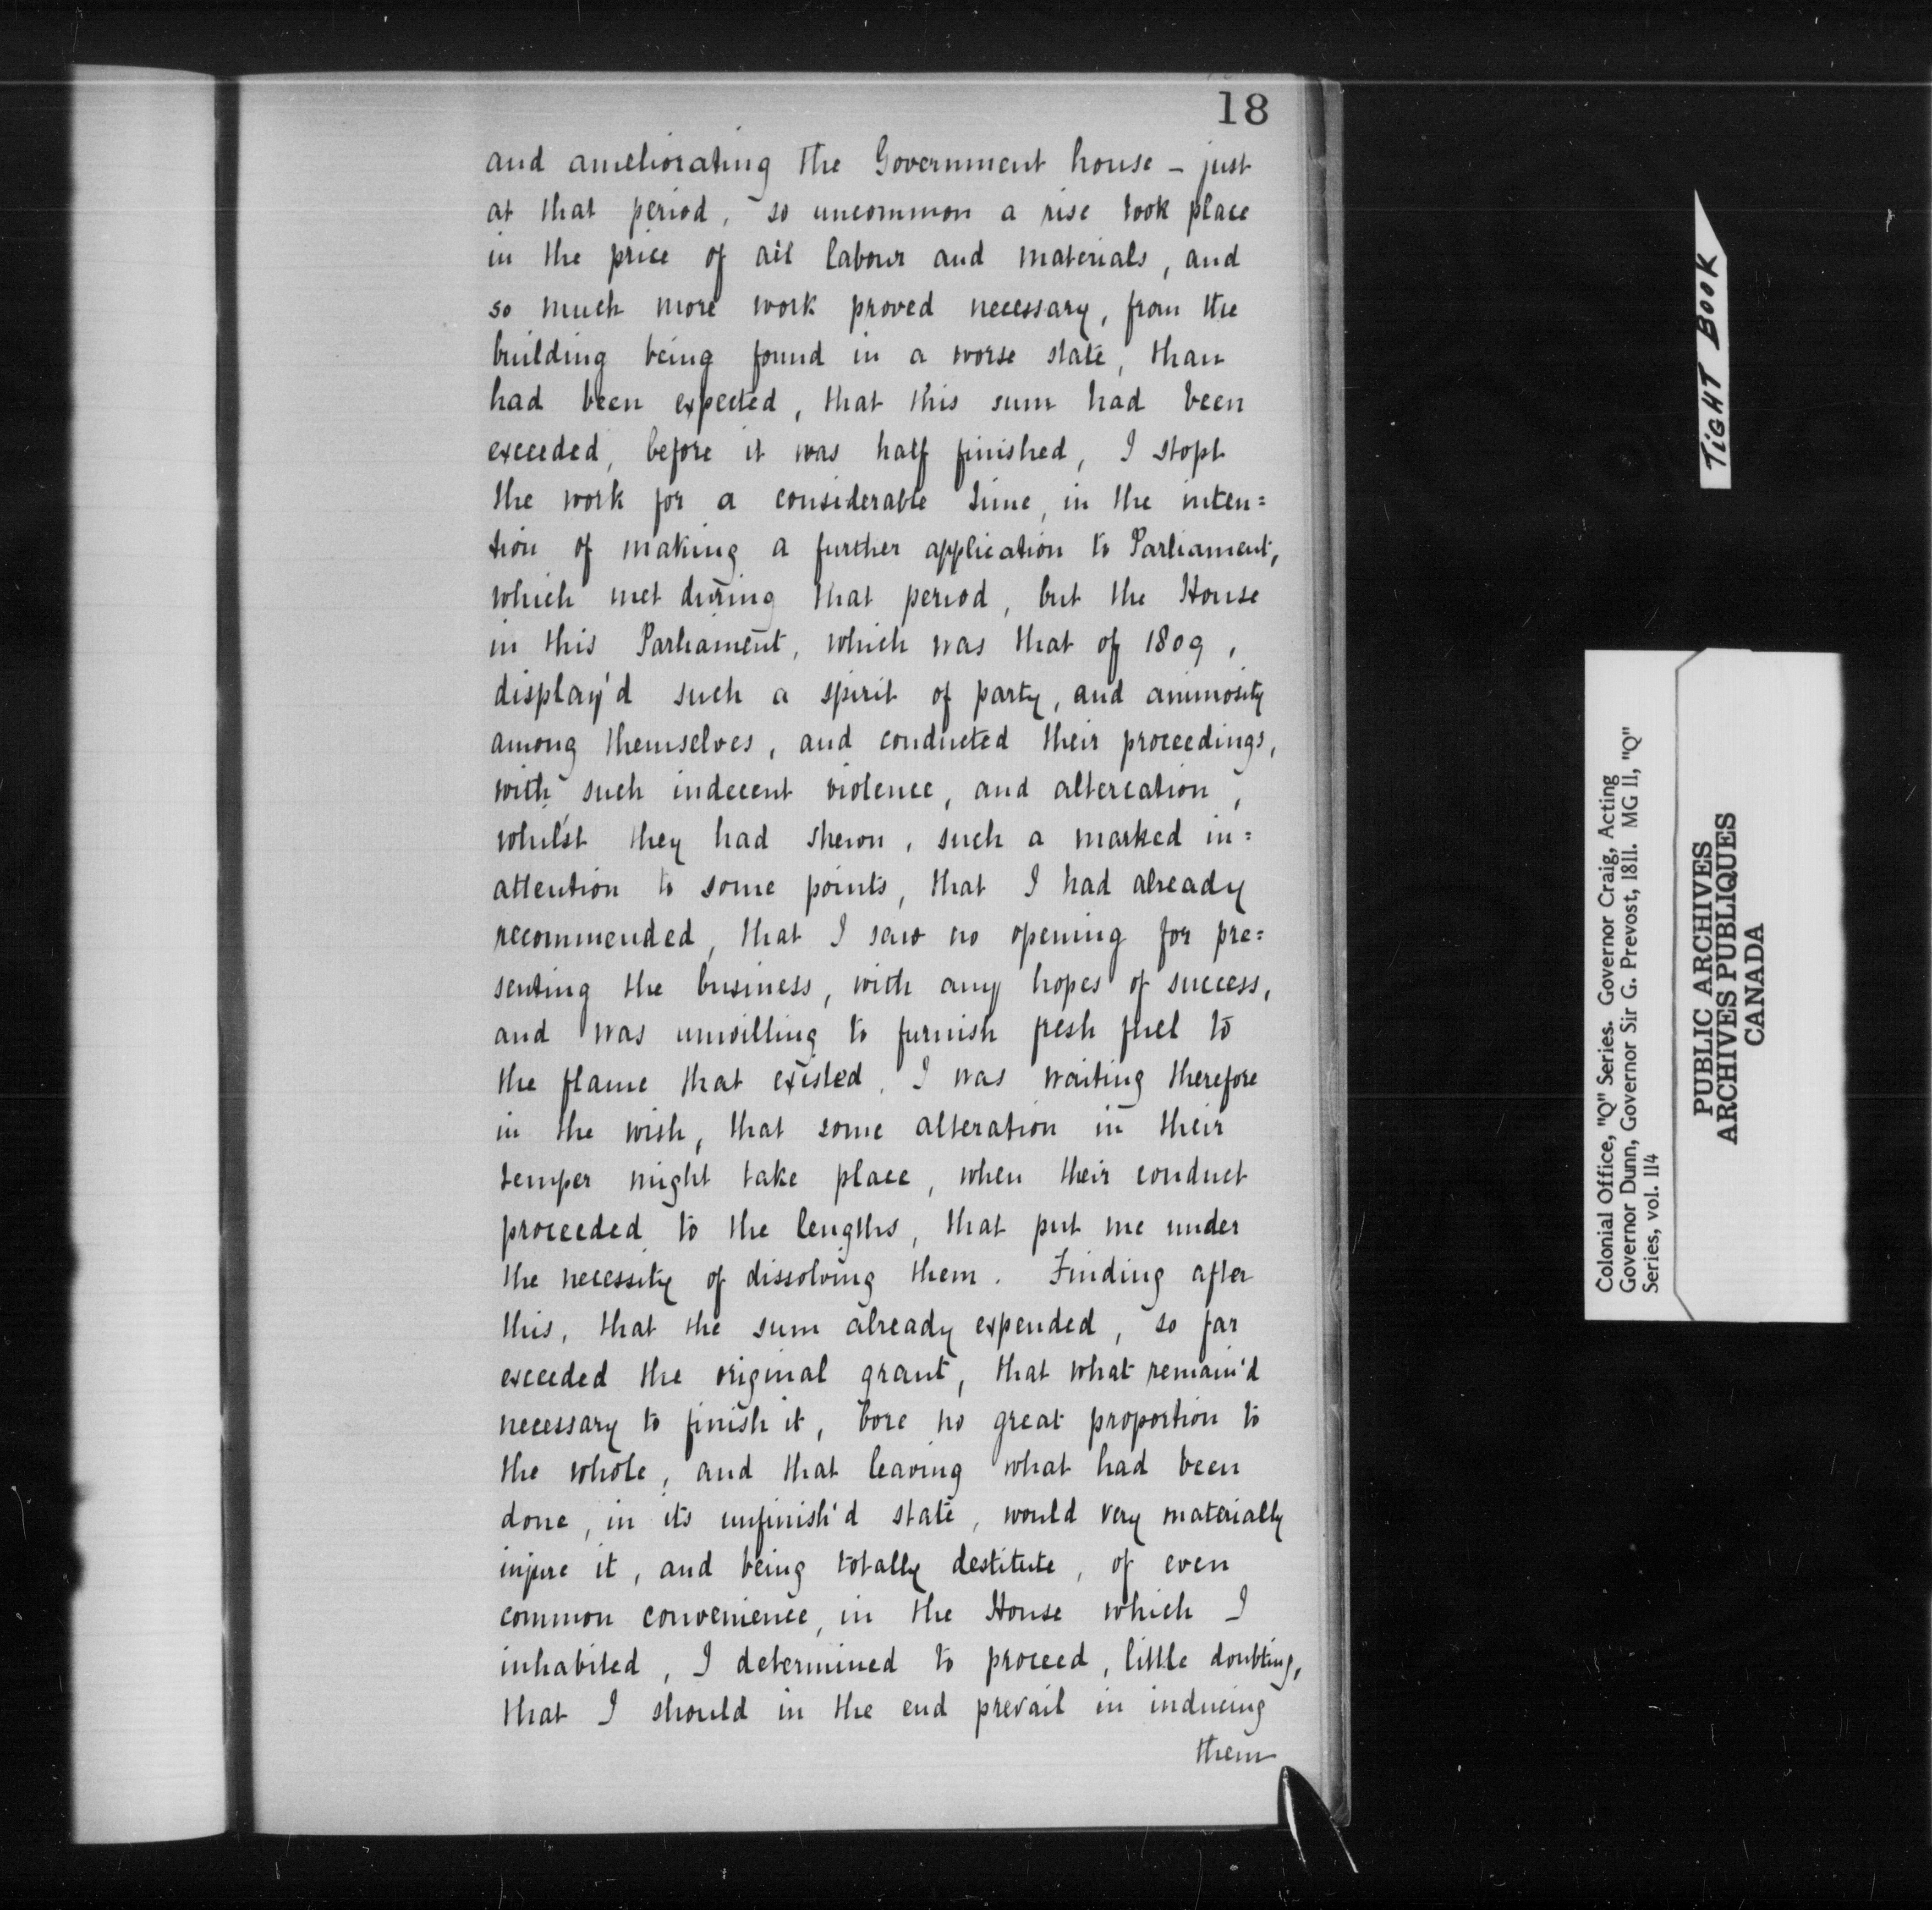 18
and ameliorating the Government house - just
at that period, so uncommon a rise took place
in the price of all labour and materials, and
so much more work proved necessary, from the
building being found in a worse state, than
had been expected, that this sum had been
exceeded, before it was half finished, I stopt
the work for a considerable time, in the inten=
tion of making a further application to Parliament,
which met during that period, but the House
in this Parliament, which was that of 1809,
display'd such a spirit of party, and animosity
among themselves, and conducted their proceedings,
with such indecent violence, and altercation,
whilst they had shewn, such a marked in=
attention to some points, that I had already
recommended, that I saw no opening for pre=
senting the business, with any hopes of success,
and was unwilling to furnish fresh fuel to
the flame that existed. I was waiting therefore
in the wish, that some alteration in their
temper might take place, when their conduct
proceeded to the lengths, that put me under
the necessity of dissolving them. Finding after
this, that the sum already expended, so far
exceeded the original grant, that what remain'd
necessary to finish it, bore no great proportion to
the whole, and that leaving what had been
done, in its unfinish'd state, would very materially
injure it, and being totally destitute, of even
common convenience, in the House which I
inhabited, I determined to proceed, little doubting,
that I should in the end prevail in inducing
them
TiGHT BOOK
Colonial Office, "Q" Series. Governor Craig, Acting
Governor Dunn, Governor Sir G. Prevost, 1811. MG 11, "Q"
Series, vol. 114
PUBLIC ARCHIVES
ARCHIVES PUBLIQUES
CANADA